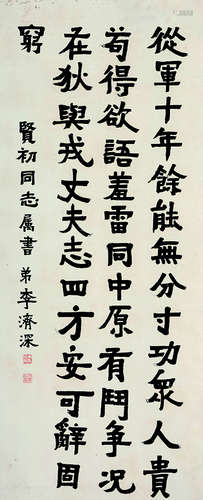 從軍十年餘能無分寸功衆人貴
苟得欲語羞雷同中原有鬥爭況
在狄與戎丈夫志四方安可辭固
窮
賢初同志属書 弟李濟深